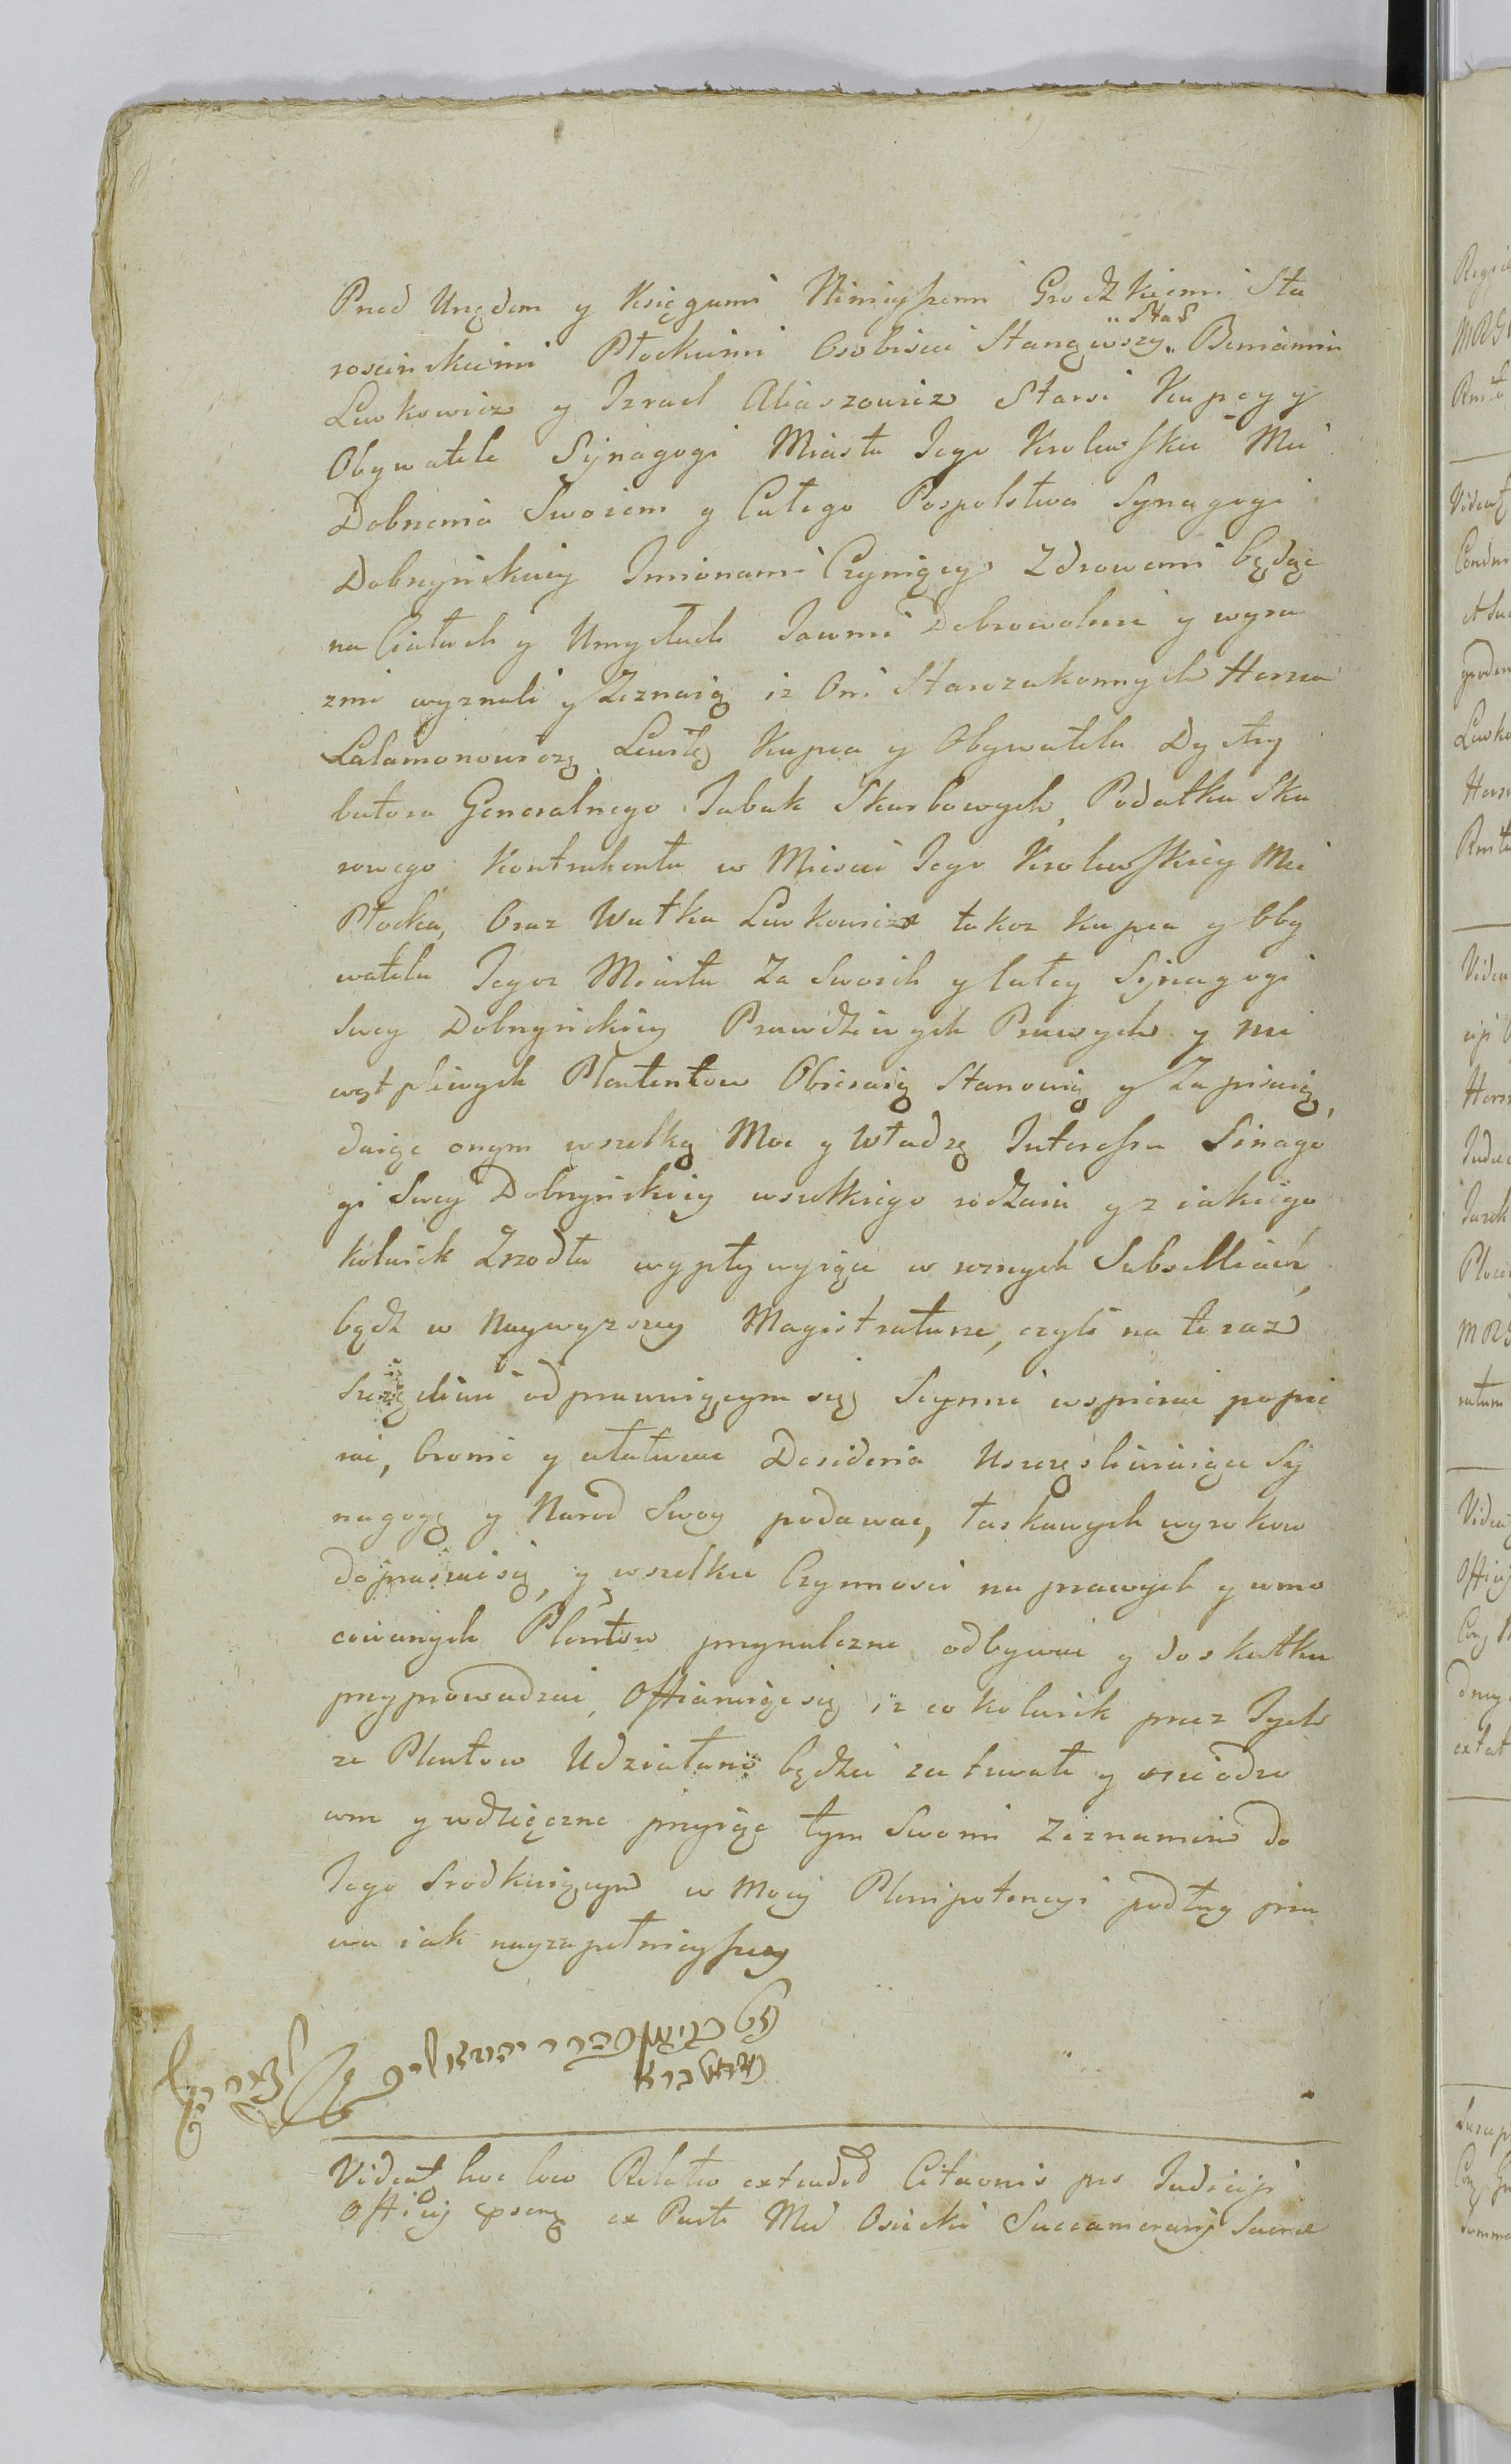 Przed Urzędem y Księgami Ninieyszemi Grodzkiemi Sta
roscinskiemi Płockiemi Osobiscie Stanąwszy „Star Beniamin
Lewkowicz y Izrael Abiaszowicz Starsi Kupcy y
Obywatele Synagogi Miasta Jego Krolewskie Mci
Dobrzenia Swoiem y Całego Pospolstwa Synagogi
Dobrzynskiey Imionami Czyniący Zdrowemi będąc
na Ciałach y Umysłach Jawnie Dobrowolnie y wyra
znie wyznali y Zeznaią iz Oni Starozakonnych Hersza
Salamonowicza Kupca y Obywatela Dystry
butora Generalnego Tabak Skarbowych, Podatku Sku
rowego Kontrahenta w Miescie Jego Krolewskiey Mci
Płocka, Oraz Wulka Lewkowicza takoz Kupca y Oby
watela Tegoz Miasta Za Swoich y całey Synagogi
Swey Dobrzynskiey Prawdziwych Prawych y nie
wątpliwych Plentow Obieraią Stanowią y Zapisuią,
daiąc onym wszelką Moc y Władzę Interessa Sinago
gi Swey Dobrzynskiey wszelkiego rodzaiu y z iakiego
kolwiek Zrzodła wypływaiące w roznych Subselliach,
bądz w Naywyzszey Magistraturze, czyli na teraz
szczęsliwie odprawuiącym się Seymie wspierac popie
rac, bronic y ułatwiac Desideria Uszczęsliwiaiące Sy
nagogę y Narod Swoy podawac, łaskawych wyrokow
dopraszac się, y wszelkie Czynnosci na prawych y umo
cowanych Plentow przynalezne odbywac y do skutku
przyprowadzac, Offiaruiąc się iz co kolwiek przez Tych
ze Plentow Udziałano będzie za trwałe y nieodzo
wne y wdzięczne przyiąc tym Swoim Zeznaniem do
Tego Srodkuiącym w Mocy Plenipotencyi podług pra
wa iak nayzupełnieyszey
Videat hoc loco Relatio extended Citaonis pro Judicijs
Officij ex Parte Osiecki Succamerarij